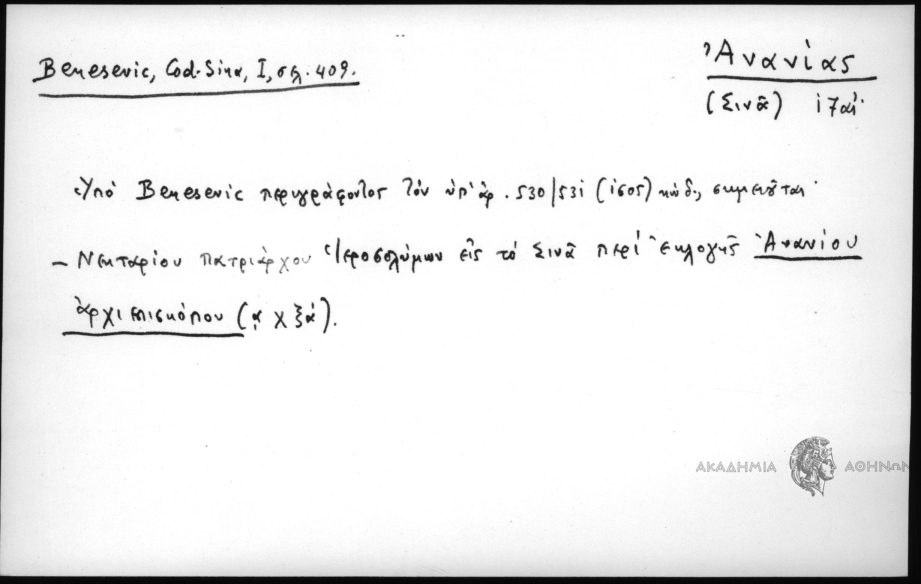 Benesevic, Cod. Sina, I, σελ. 409.
Ἀνανίας
(Σινᾶ) 17 αἰ.
Ὑπό Benesevic περιγράφοντος τόν ὑπ' ἀρ. 530/531 (ἴσος) κώδ., σημειοῦται·
– Νεκταρίου πατριάρχου Ἱεροσολύμων εἰς τό Σινᾶ περί ἐκλογῆς Ἀνανίου
ἀρχιεπισκόπου (͵αχξά).
ΑΚΑΔΗΜΙΑ ΑΘΗΝΩΝ